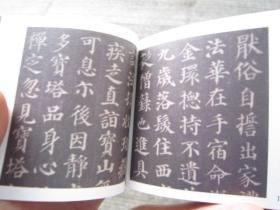 厭俗自誓出家禮
法華在手宿命
金環揔持不遺
九歲落髮住西
僧籙也進具
疾走直詣寶山
可息尓後因靜
多寶塔品身心
禪定忽見寶塔